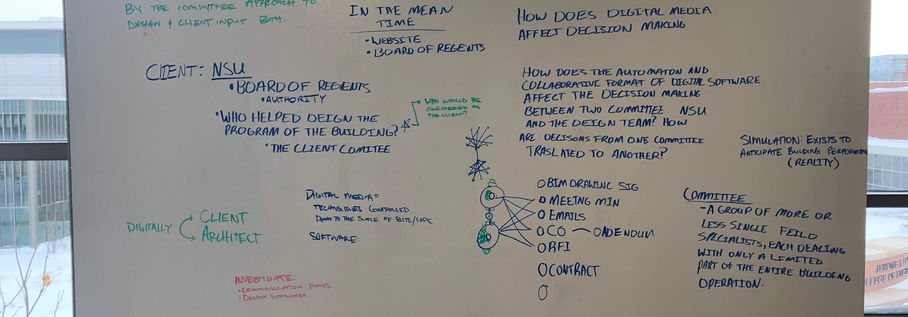 BY THE COMMITTEE APPROACH TO
DESIGN + CLIENT INPUT BOTH.
IN THE MEAN
TIME
• WEBSITE
• BOARD OF REGENTS
HOW DOES DIGITAL MEDIA
AFFECT DECISION MAKING
CLIENT: NSU
• BOARD OF REGENTS
• AUTHORITY
• WHO HELPED DEIGN THE
PROGRAM OF THE BUILDING?
• THE CLIENT COMITEE
WHO WOULD BE
CONSIDERED AS
THE CLIENT?
HOW DOES THE AUTOMATON AND
COLLABORATIVE FORMAT OF DIGITAL SOFTWARE
AFFECT THE DECISION MAKING
BETWEEN TWO COMMITTEE NSU
AND THE DEIGN TEAM? HOW
ARE DECISONS FROM ONE COMMITTEE
TRASLATED TO ANOTHER?
SIMULATION: EXISTS TO
ANTICIPATE BUILDING PERFORMANCE
(REALITY)
DIGITALLY
CLIENT
ARCHITECT
DIGITAL MEDIA =
TECHNOLOGIES CONTROLLED
DOWN TO THE SCALE OF BITS/CODE
SOFTWARE:
BIM DRAWING SIG
MEETING MIN
EMAILS
CO — ADENDUM
RFI
CONTRACT
COMMITTEE
- A GROUP OF MORE OR
LESS SINGLE FEILD
SPECIALISTS, EACH DEALING
WITH ONLY A LIMITED
PART OF THE ENTIRE BUILDING
OPERATION.
INVESTIGATE:
• COMMUNICATION PATHS